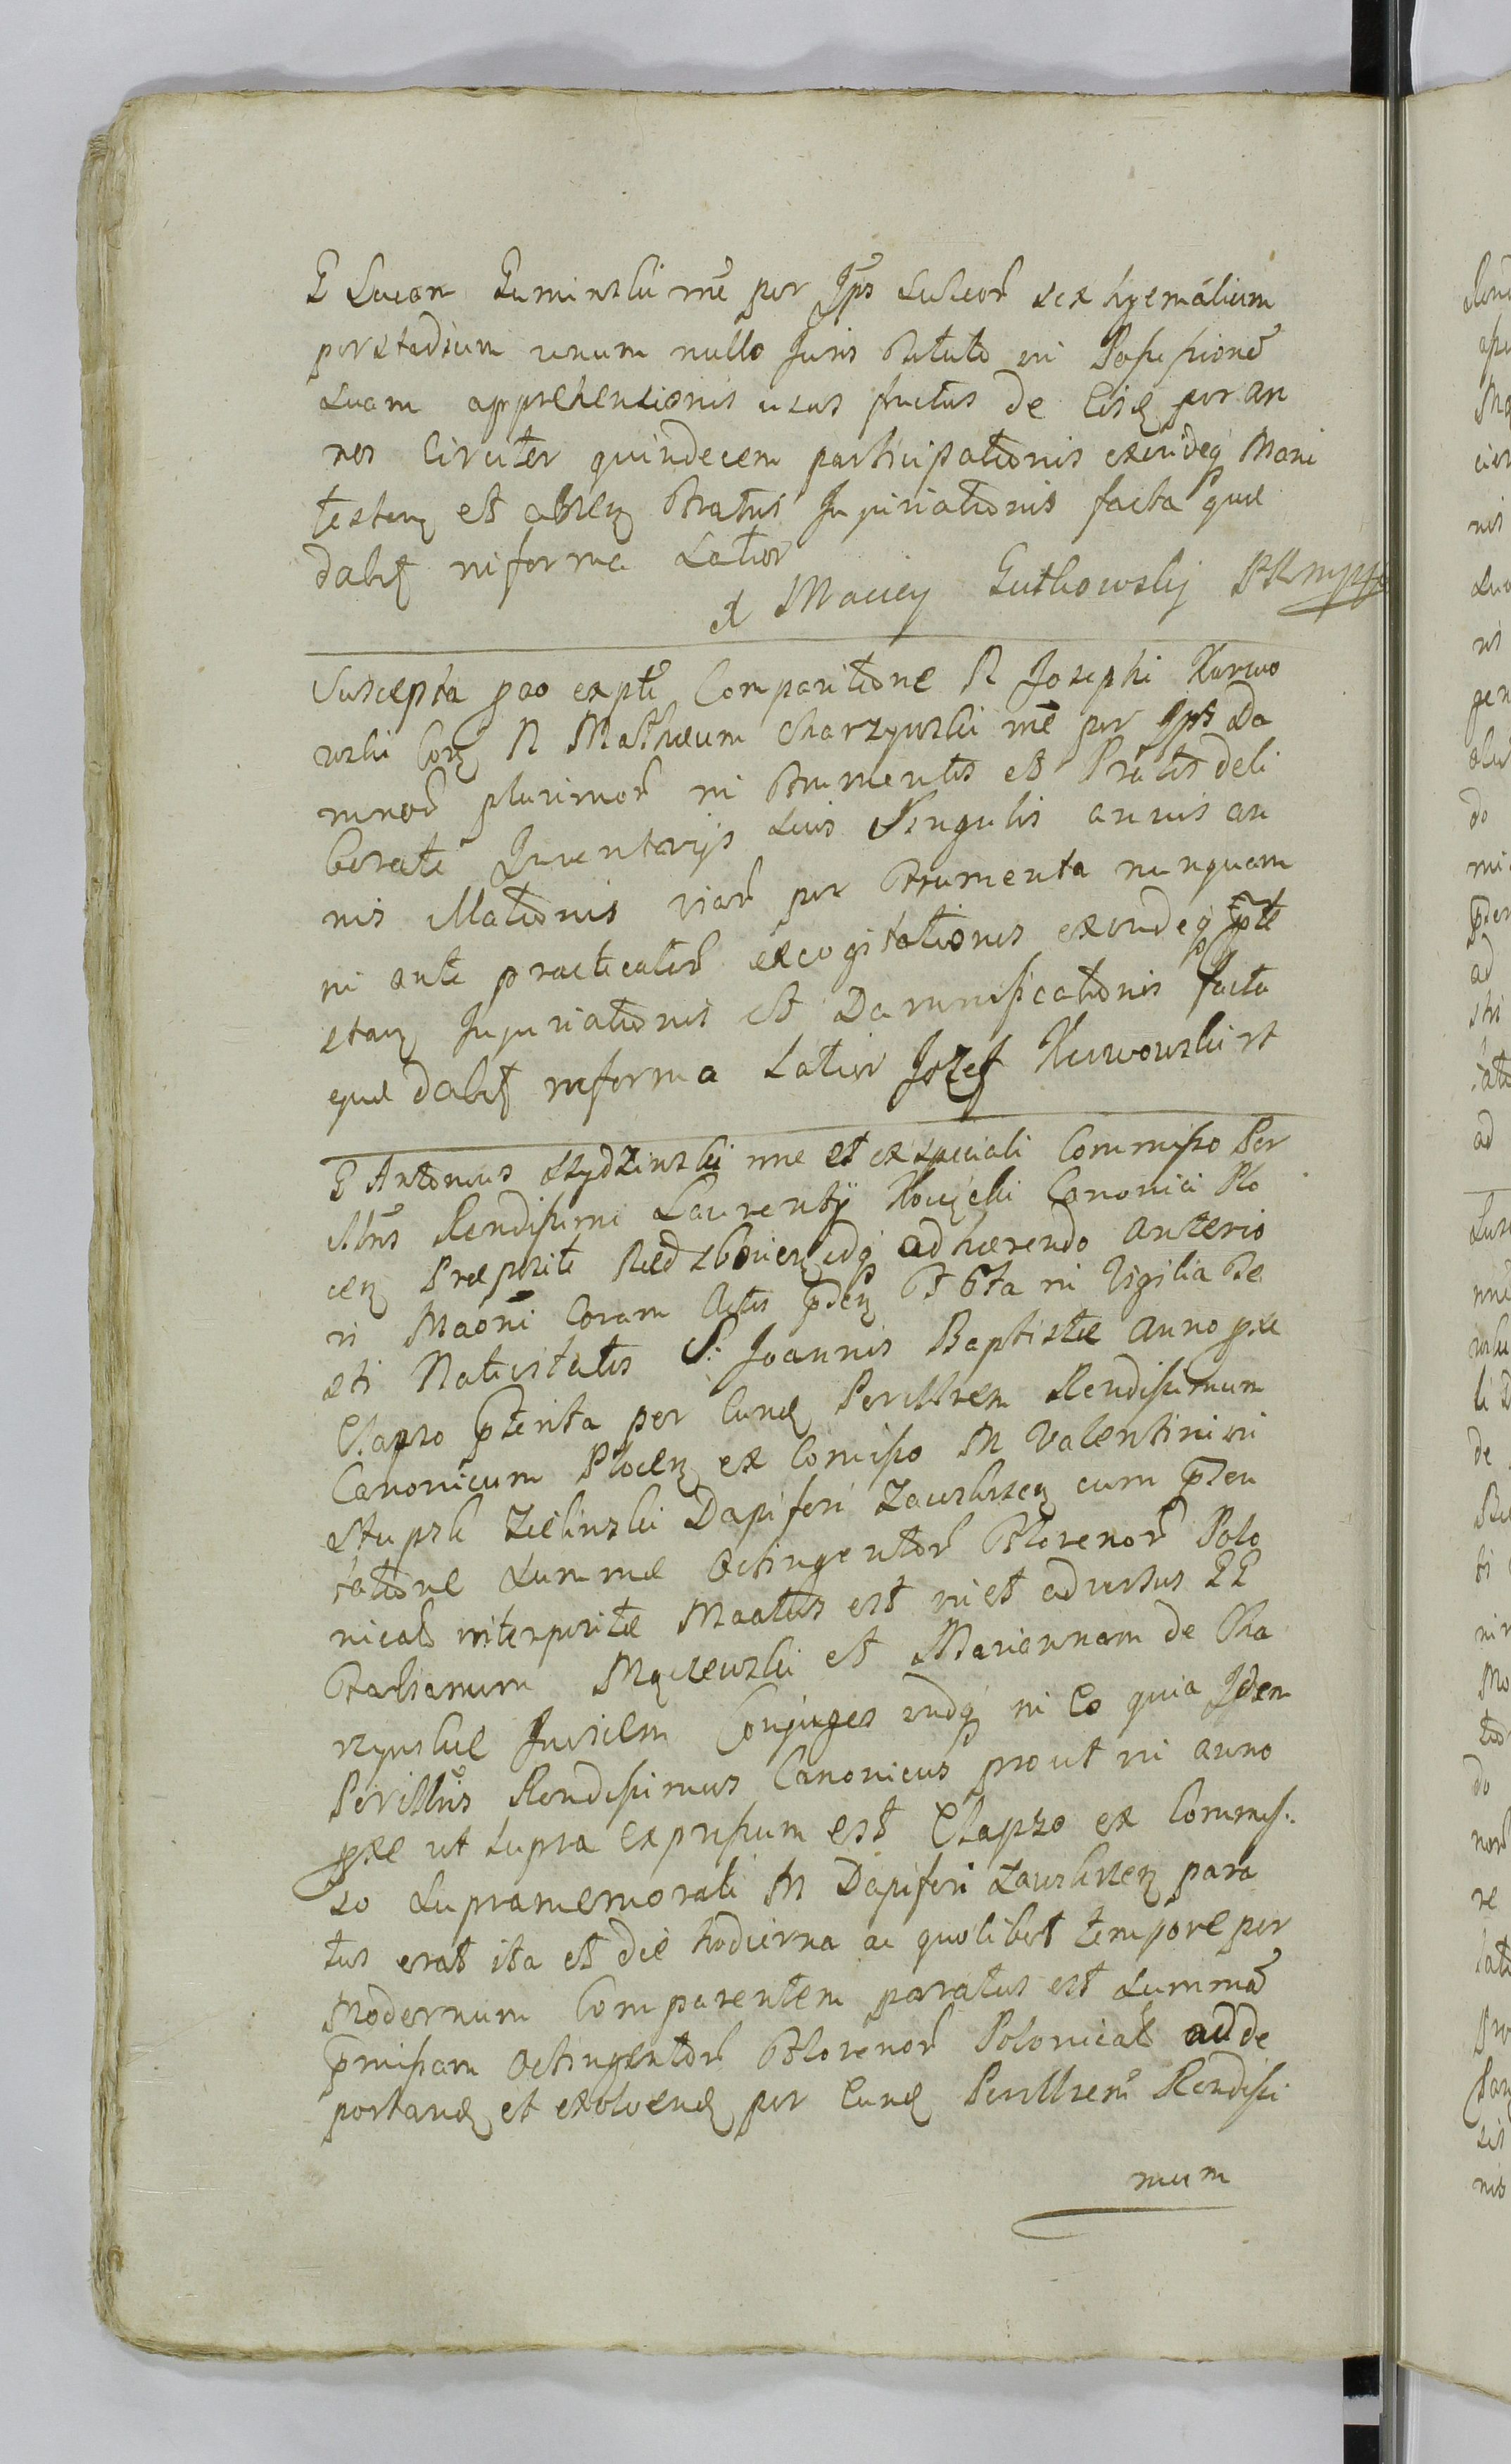 G Lucam Guminski me per Jps Sulcor sex hyemalium
per stadium unum nullo Juris titulo in Possessione
Suam apprehensionis usus fructus de Eisq per an
nos Circiter quindecem participationis exindeq Mani
festam et
dabit in forma Latior
Maciey Gutkowsky
Suscepta pao ex pte Comparitione N Josephi Karwo
wski Corq N Mathæum Charzynski me per Jps Da
mnor plurimor in frumentis et Pratis deli
berate Inventarijs Suis Singulis annis an
nis illationis viar per frumenta nunquam
in ante practicatar excogitationis exindeq pte
stam Injuriationis et Damnificationis facta
quæ dabit in forma Latior Jozef Karwowski
G Antonius Stydzinski me et ex speciali Commisso Per
Illris Rendissimi Laurentij Canonici Plo
cen Præpositi idq adhærendo anterio
ri Maoni Coram Actis pden in Vigilia Fe
sti Nativitatis S: Joannis Baptistæ anno pxe
Elapso pterita per Eund Perillrem Rendissimum
Canonicum Plocen ex Comisso M Valentini in
Stupsk Zielinski Dapiferi Zawskrzen cum pzen
tatione Summæ Octingentor Florenor Polo
nical interpositæ Maatus est in et adversus GG
Fabianum et Mariannam de Cha
rzynskie Invicem Conjuges indq in Eo quia Idem
Perillris Rendissimus Canonicus prout in anno
pxe ut supra Expressum est Elapso ex Commis:
so Supramemorati M Dapiferi Zawskrzen para
tus erat ita et die hodierna ac quolibet tempore per
Modernum Comparentem paratus est Summa
pmissam Octingentor Florenor Polonical ad de
portand et exolvend per Eund Perillrem Rendissi
mum